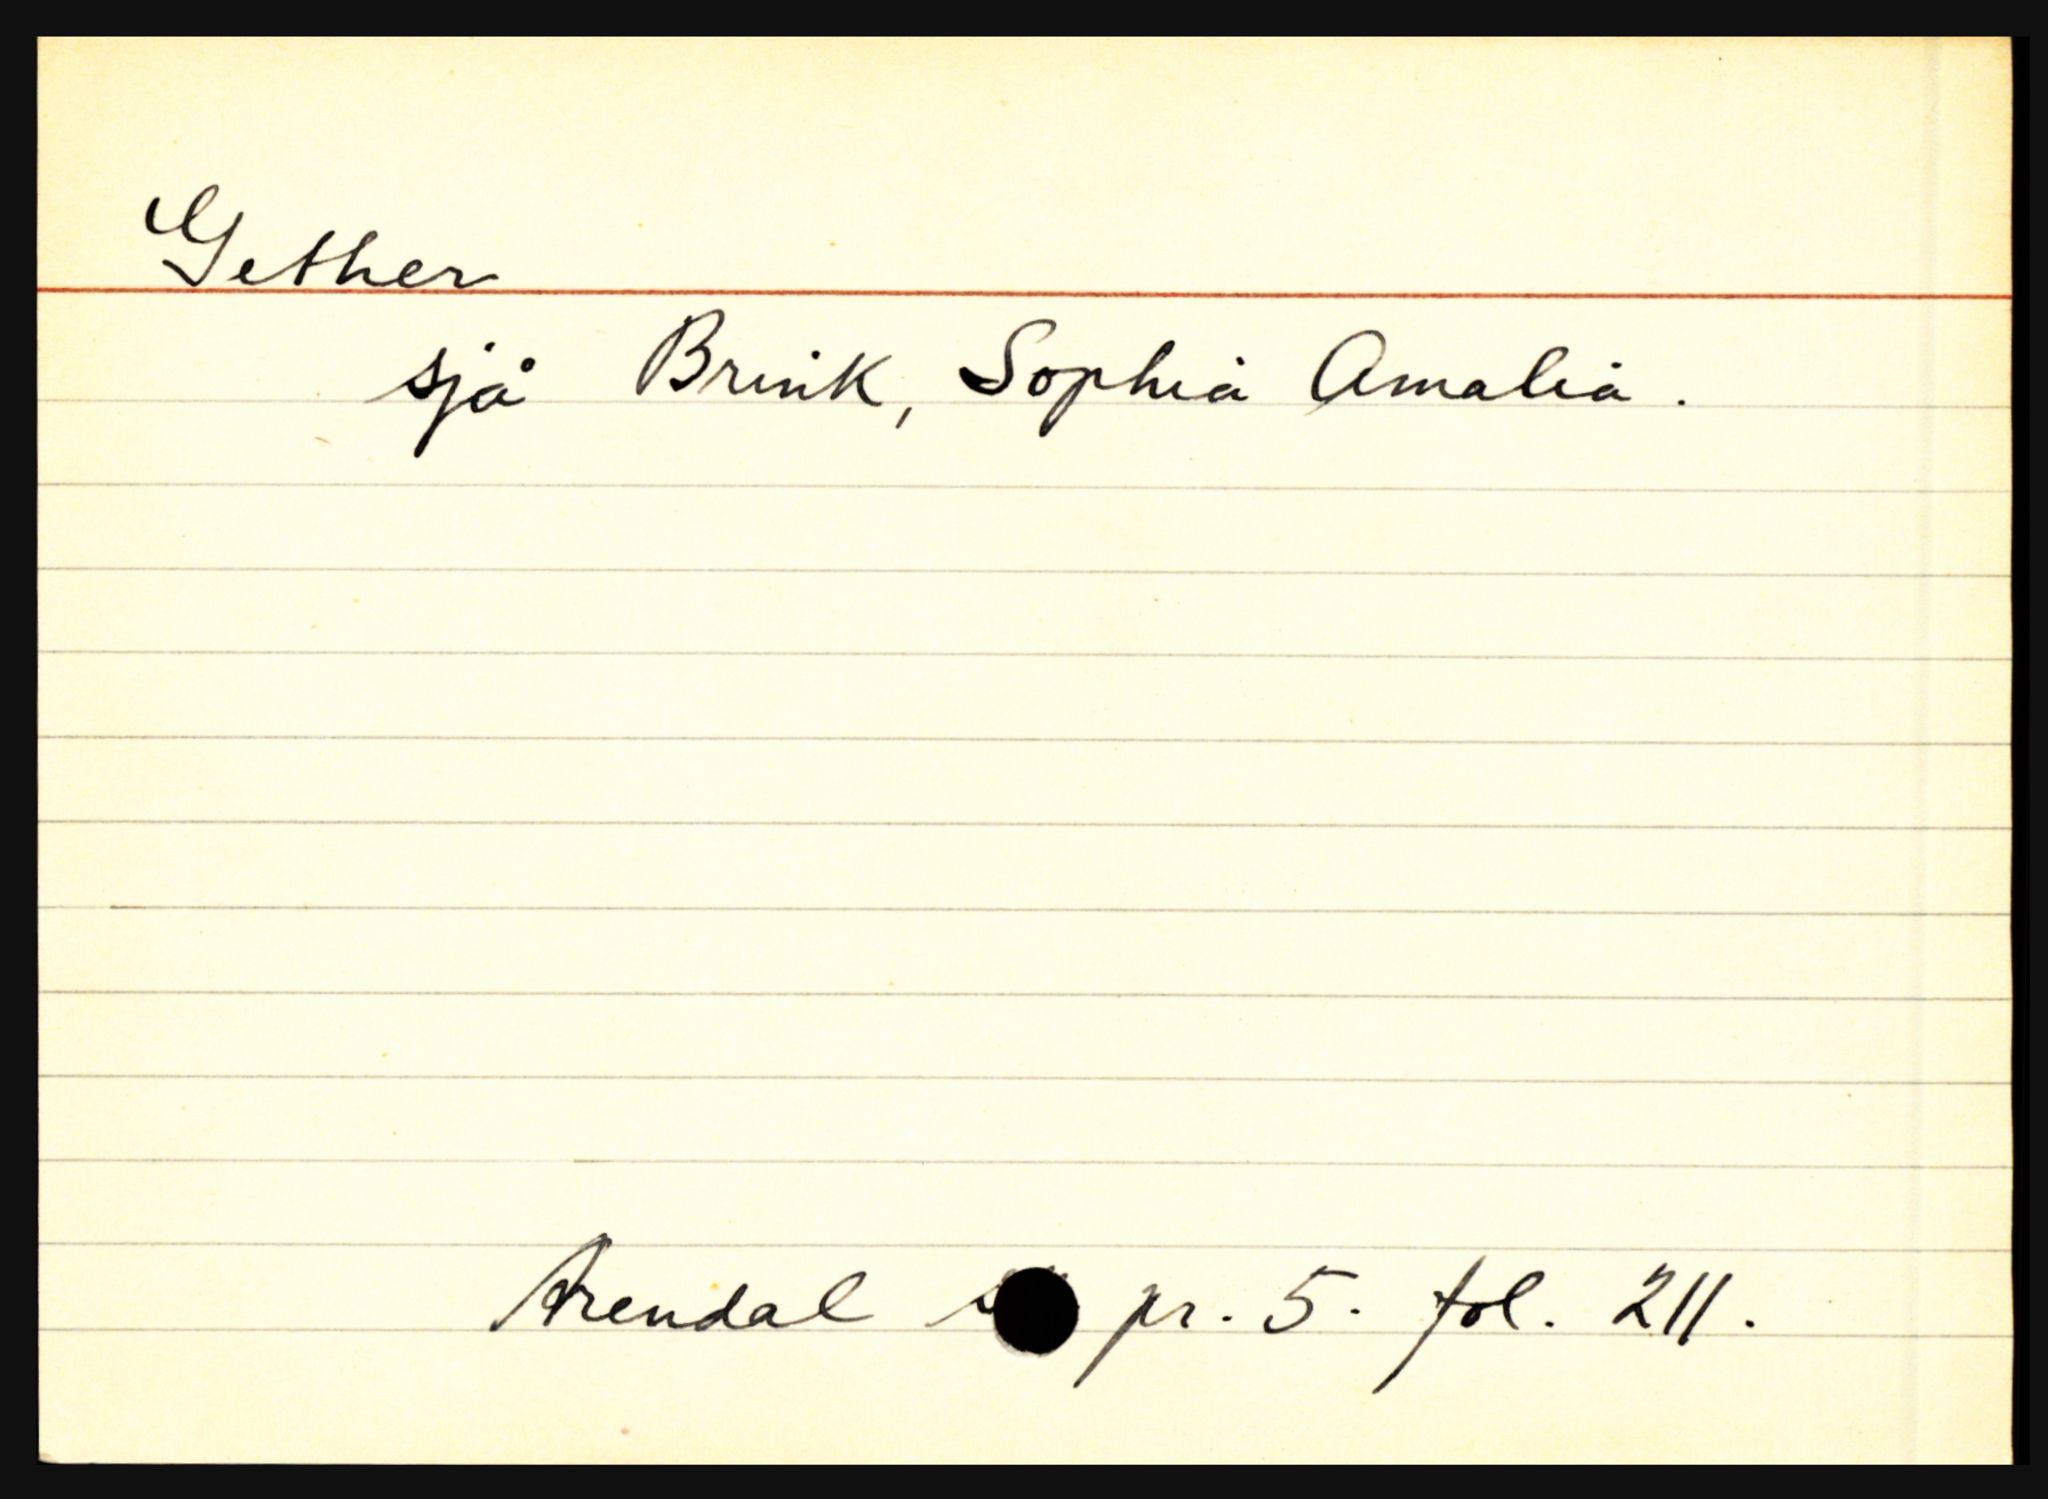 Gether
sjå Brink, Sophia Amalia.
Arendal pr. 5. fol. 211.